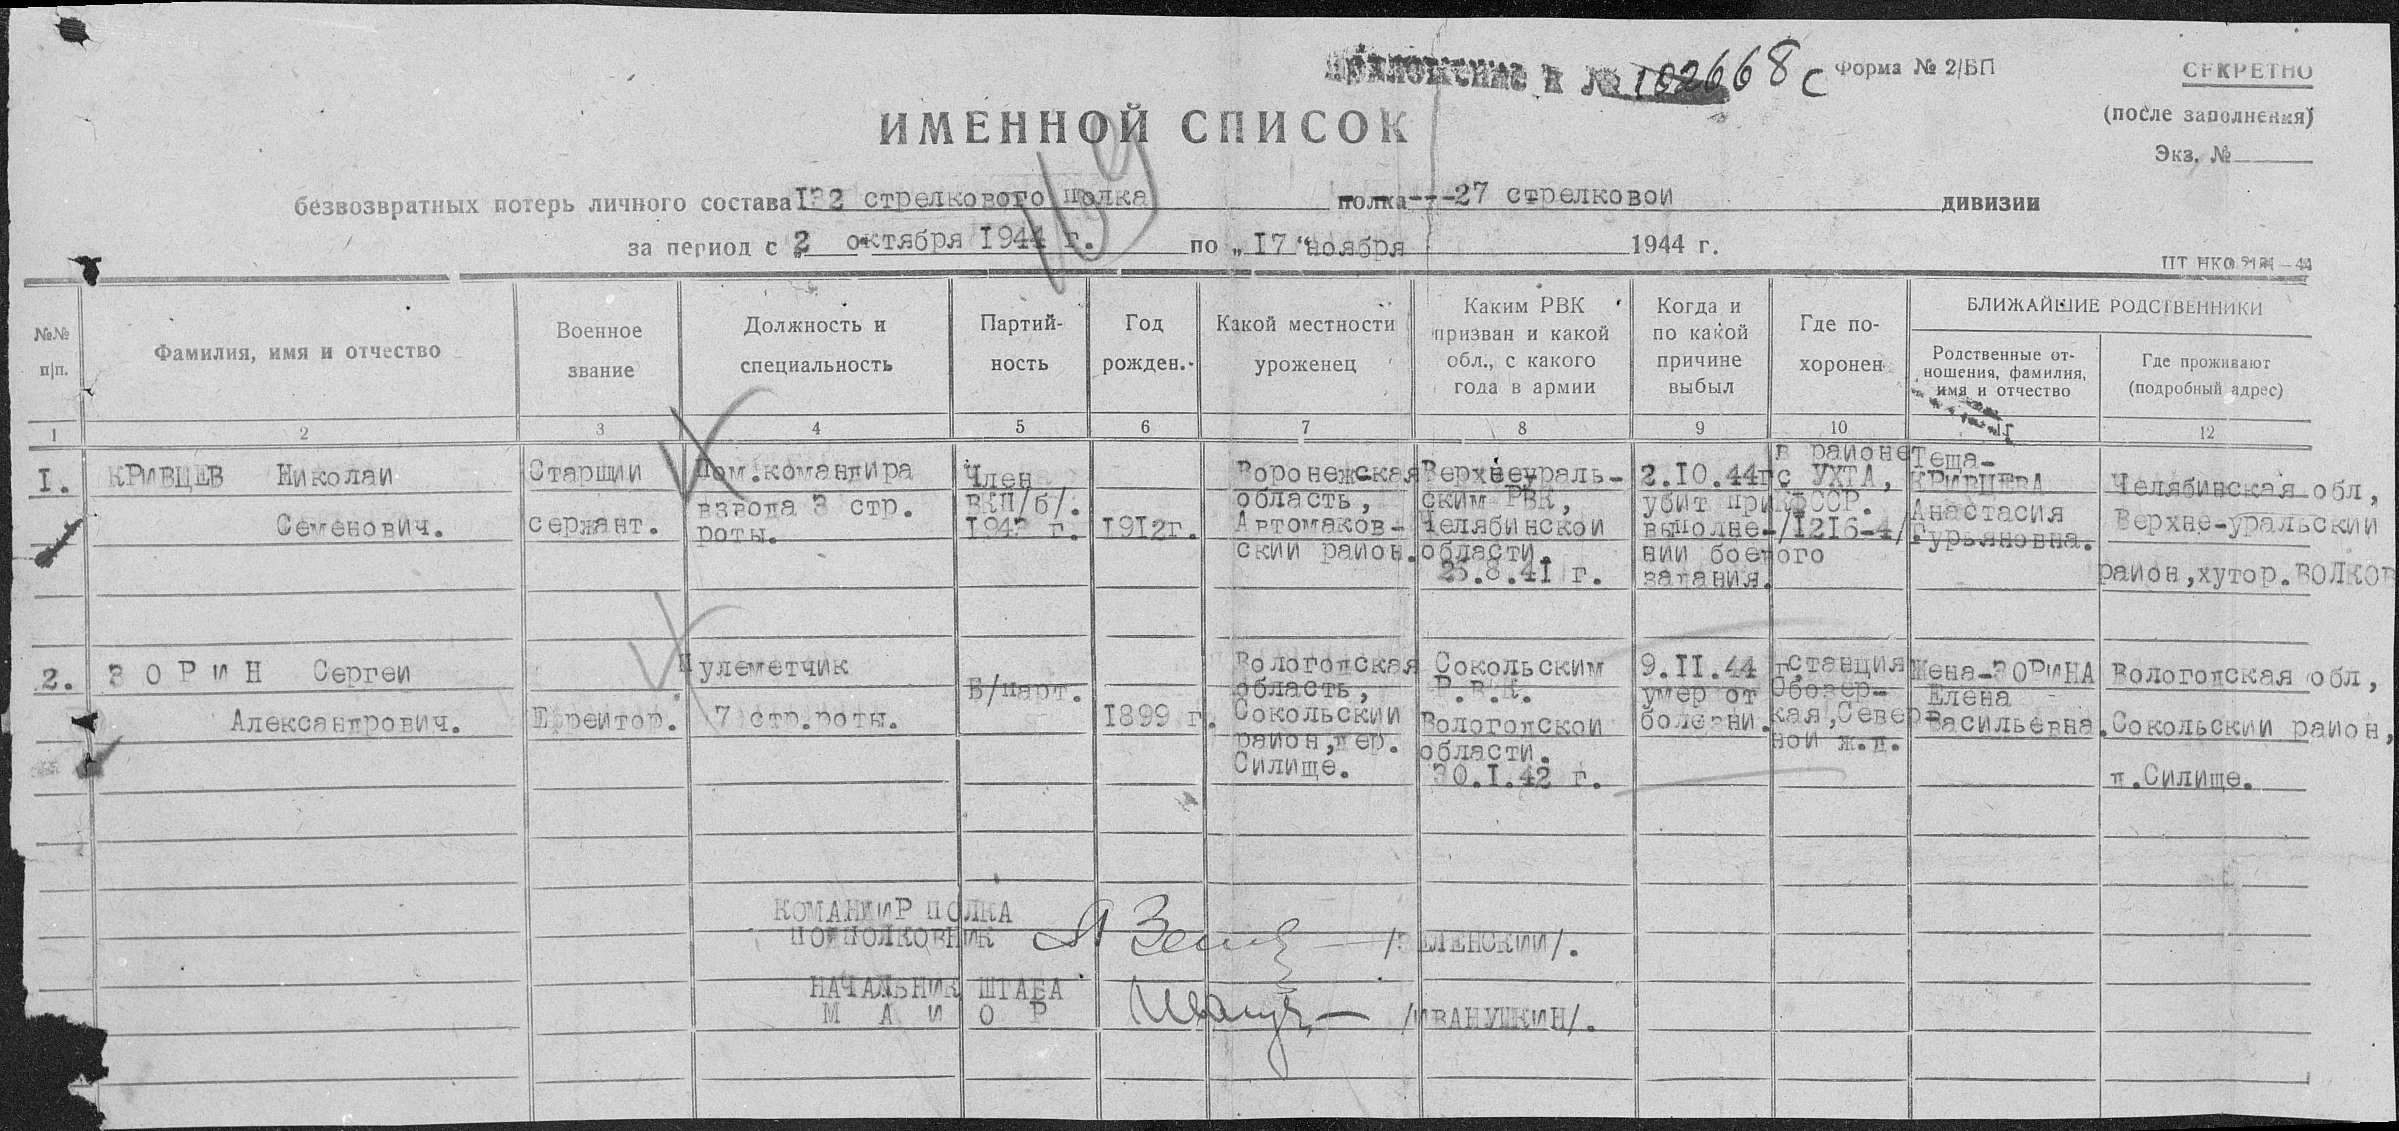 Приложение к № 102668с
Форма № 2/БП
СЕКРЕТНО
(после заполнения)
Экз. №
ИМЕННОЙ СПИСОК
безвозвратных потерь личного состава 132 стрелкового полка полка---27 стрелковой дивизии
за период с 2 октября 1944 г. по „17“ ноября 1944 г.
ЦТ НКО
№№ п/п.
Фамилия, имя и отчество
Военное звание
Должность и специальность
Партий-ность
Год рожден.
Какой местности уроженец
Каким РВК призван и какой обл., с какого года в армии
Когда и по какой причине выбыл
Где по-хоронен
БЛИЖАЙШИЕ РОДСТВЕННИКИ
Родственные от-ношения, фамилия, имя и отчество
Где проживают (подробный адрес)
1 2 3 4 5 6 7 8 9 10 11 12
1.
КРИВЦЕВ Николай
Семенович.
Старший
сержант.
Пом.командира
взвода 3 стр.
роты.
Член
ВКП/б/.
194 г.
1912г.
Воронежская
область,
Автомаков-
ский район.
Верхнеураль-
ским РВК,
Челябинской
области.
25.8.41 г.
2.10.44г
убит при
выполне-
нии боевого
задания.
в районе
с УХТА,
КФССР.
/1216-4/.
Теща-
КРИВЦЕВА
Анастасия
Гурьяновна.
Челябинская обл,
Верхне-уральский
район,хутор.ВОЛКОВ
2.
З О Р И Н Сергей
Александрович.
Ефрейтор.
Пулеметчик
7 стр.роты.
Б/парт.
1899 г.
Вологодская
область,
Сокольский
район,дер.
Силище.
Сокольским
Р.В.К.
Вологодской
области.
30.1.42 г.
9.11.44 г.
умер от
болезни.
станция
Обозер-
кая,Север-
ной ж.д.
Жена-ЗОРИНА
Елена
Васильевна.
Вологодская обл,
Сокольский район,
д.Силище.
КОМАНДИР ПОЛКА
ПОДПОЛКОВНИК /ЗЕЛЕНСКИЙ/.
НАЧАЛЬНИК ШТАБА
М А Й О Р /ИВАНУШКИН/.